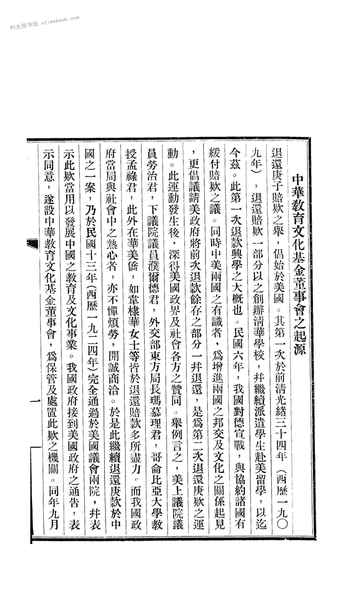 中華教育文化基金董事會之起源
退還庚子賠欵之舉，倡始於美國。其第一次於前淸光緒三十四年（西歷一九〇
九年），退還賠欵一部分以之創辦淸華學校，幷繼續派遣學生赴美留學，以迄
今茲。此第一次退款興學之大概也。民國六年，我國對德宣戰，與協約諸國有
緩付賠欵之議。同時中美兩國之有識者，爲增進兩國之邦交及文化之關係起見
，更倡議請美政府將前次退款餘存之部分一幷退還，是爲第二次退還庚欵之運
動。此運動發生後，深得美國政界及社會各方之贊同。舉例言之，美上議院議
員勞治君，下議院議員濮爾德君，外交部東方局長瑪慕理君，哥侖比亞大學敎
授孟祿君，此外在華美僑，如韋棣華女士等皆於退還賠款多所盡力。而我國政
府當局與社會中之熱心者，亦不憚煩勞，開誠商洽。於是此繼續退還庚款於中
國之一案，乃於民國十三年（西歷一九二四年）完全通過於美國議會兩院，幷表
示此欵當用以發展中國之敎育及文化事業。我國政府接到美國政府之通告，表
示同意，遂設中華敎育文化基金董事會，爲保管及處置此欵之機關。同年九月
一